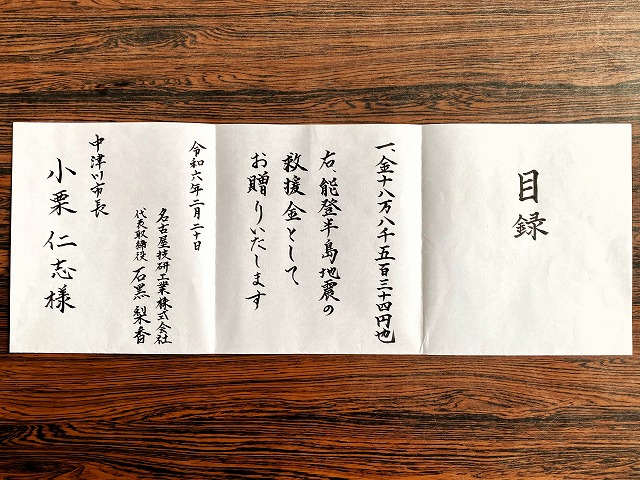 目録
一、金十八万八千五百三十四円也
右、能登半島地震の
救援金として
お贈りいたします
令和六年二月二十日
名古屋技研工業株式会社
代表取締役 石黒 梨香
中津川市長
小栗 仁志 様